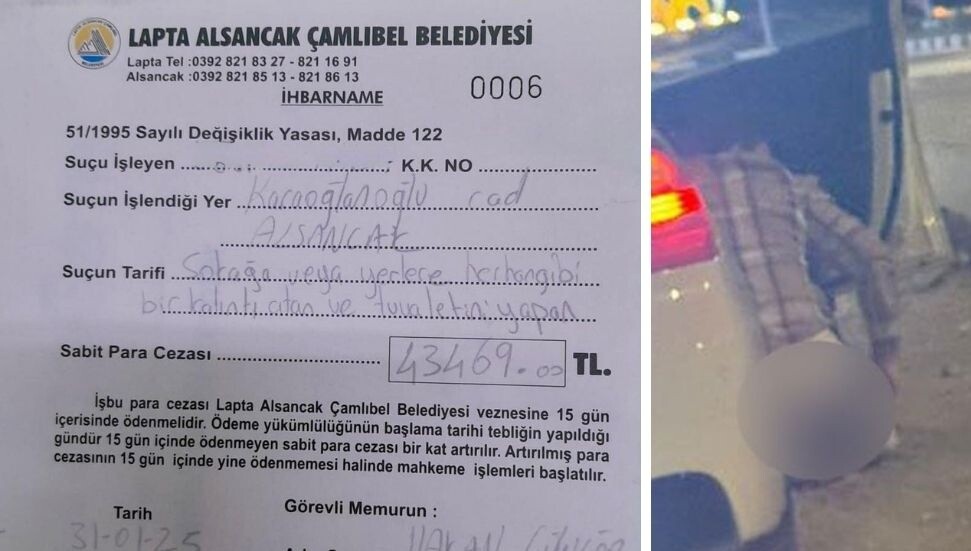 LAPTA ALSANCAK ÇAMLIBEL BELEDİYESİ
Lapta Tel :0392 821 83 27 - 821 16 91
Alsancak :0392 821 85 13 - 821 86 13
İHBARNAME 0006
51/1995 Sayılı Değişiklik Yasası, Madde 122
Suçu İşleyen K.K. NO
Suçun İşlendiği Yer Karaoğlanoğlu cad
ALSANCAK
Suçun Tarifi Sokağa veya yerlere herhangibi
bir kalıntı atan ve tuvaletini yapan
Sabit Para Cezası 43469.00 TL.
İşbu para cezası Lapta Alsancak Çamlıbel Belediyesi veznesine 15 gün
içerisinde ödenmelidir. Ödeme yükümlülüğünün başlama tarihi tebliğin yapıldığı
gündür 15 gün içinde ödenmeyen sabit para cezası bir kat artırılır. Artırılmış para
cezasının 15 gün içinde yine ödenmemesi halinde mahkeme işlemleri başlatılır.
Tarih Görevli Memurun :
31-01-25 HAKAN